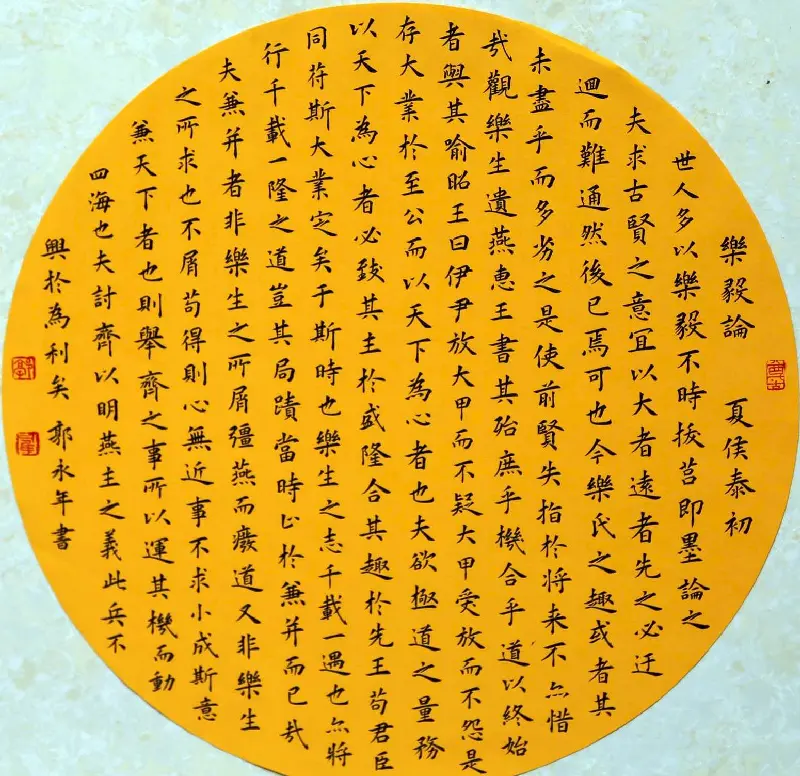 樂毅論　夏侯泰初
世人多以樂毅不時拔莒即墨論之
夫求古賢之意宜以大者遠者先之必迂
迴而難通然後已焉可也今樂氏之趣或者其
未盡乎而多劣之是使前賢失指於將来不亦惜
哉觀樂生遺燕惠王書其殆庶乎機合乎道以終始
者與其喻昭王曰伊尹放大甲而不疑大甲受放而不怨是
存大業於至公而以天下為心者也夫欲極道之量務
以天下為心者必致其主於盛隆合其趣於先王苟君臣
同苻斯大業定矣于斯時也樂生之志千載一遇也亦將
行千載一隆之道豈其局蹟當時止於兼并而已哉
夫兼并者非樂生之所屑彊燕而廢道又非樂生
之所求也不屑苟得則心無近事不求小成斯意
兼天下者也則舉齊之事所以運其機而動
四海也夫討齊以明燕主之義此兵不
興於為利矣　郭永年書